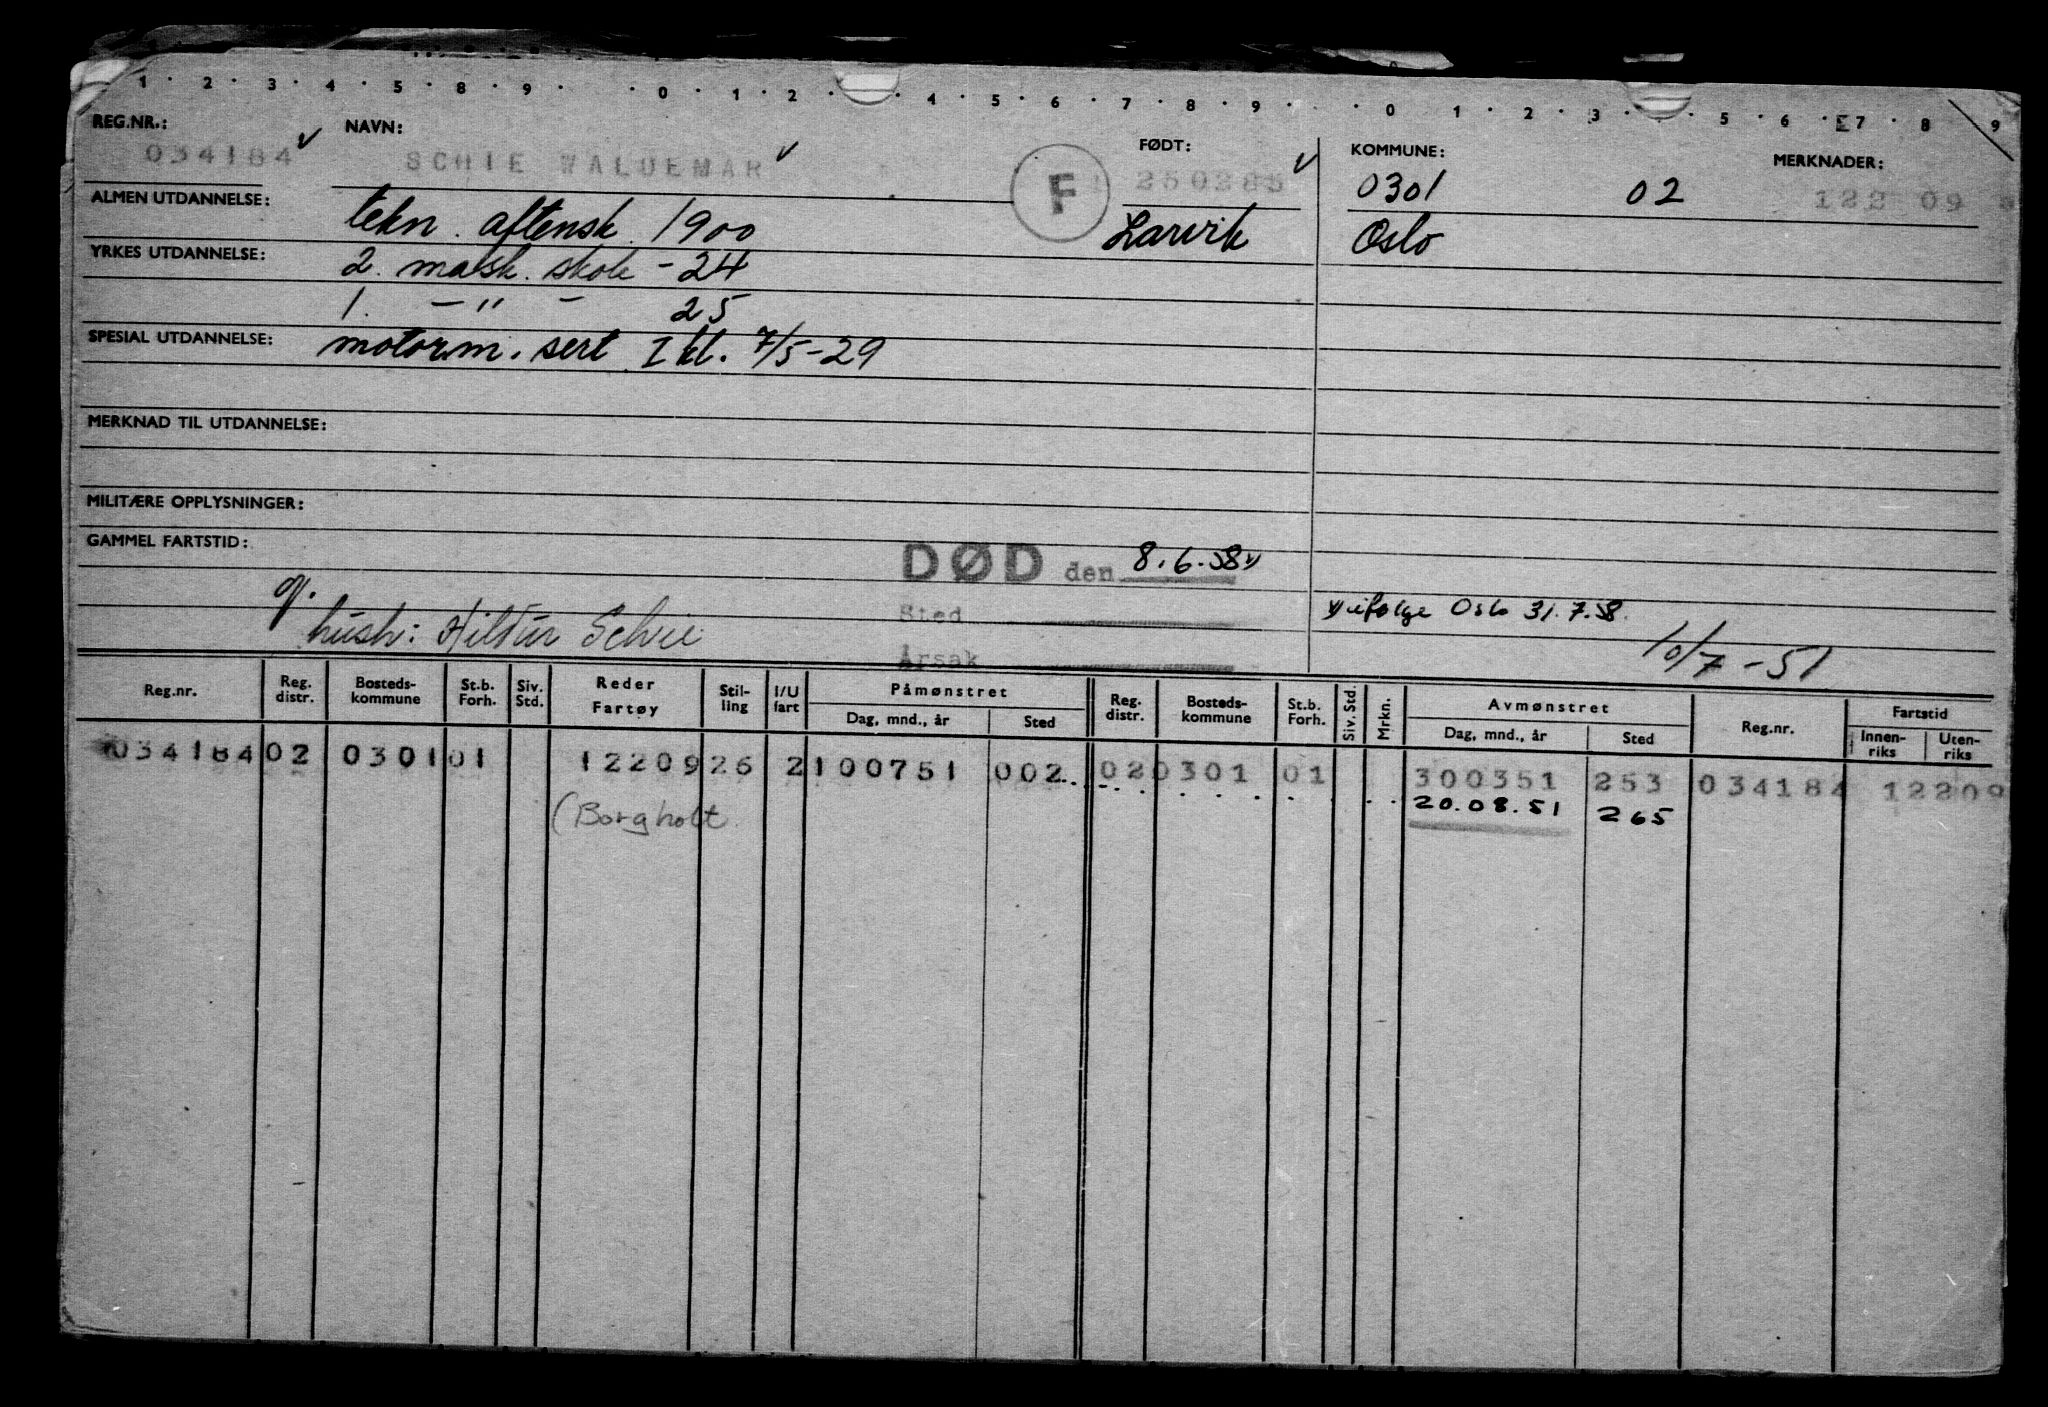 1 · 2 · 3 · 4 · 5 · 8 · 9 · · 0 · 1 · 2 · · 4 · 5 · 6 · 7 · 8 · 9 · · 0 1 · 2 · 3 · · 5 · 6 · 7 · 8 9
REG.NR.: NAVN: FØDT: KOMMUNE: MERKNADER:
034184 SCHIE WALDEMAR F 250285 0301 02 122 09
ALMEN UTDANNELSE: tekn. aftensk. 1900 Larvik Oslo
YRKES UTDANNELSE: 2. mask. skole - 24
1. - " - 25
SPESIAL UTDANNELSE: motorm. sert. I kl. 7/5-29
MERKNAD TIL UTDANNELSE:
MILITÆRE OPPLYSNINGER:
GAMMEL FARTSTID: DØD den 8.6.58 1)
g. Sted 1) ifølge Oslo 31.7.58.
hush: Hildur Schie Årsak 10/7-51
Reg.nr. Reg. distr. Bosteds-kommune St.b. Forh. Siv. Std. Reder Fartøy Stil-ling I/U fart Påmønstret Dag, mnd., år Sted Reg. distr. Bosteds-kommune St.b. Forh. Siv. Std. Mrkn. Avmønstret Dag, mnd., år Sted Reg.nr. Fartstid Innen-riks Uten-riks
034184 02 0301 01 12209 26 2 100751 002 02 0301 01 300351 253 034184 12209
(Borgholt 20.08.51 265